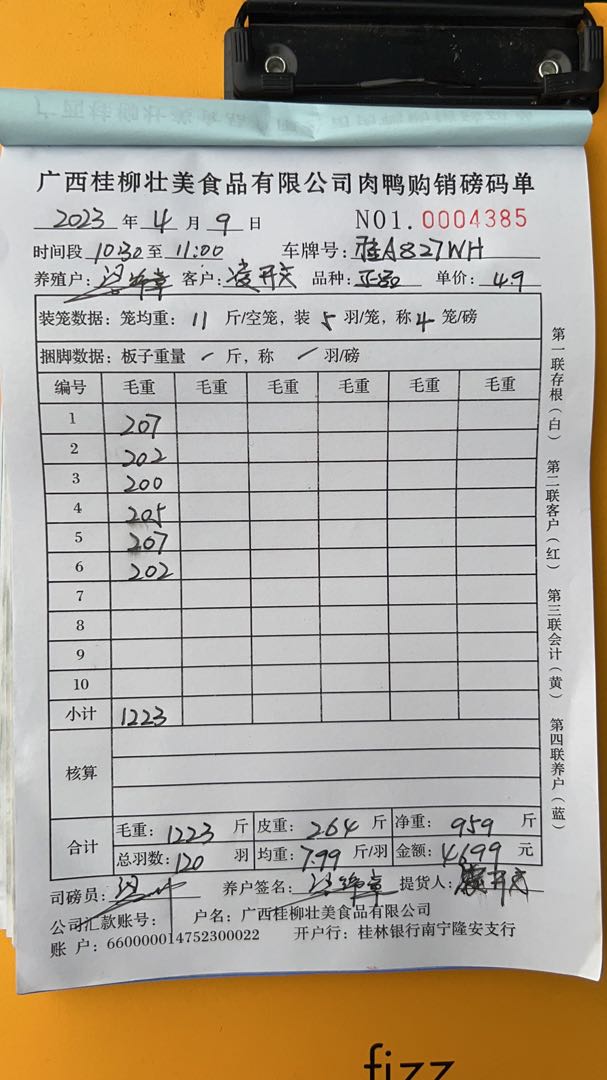 广西桂柳壮美食品有限公司肉鸭购销磅码单
2023 年 4 月 9 日 NO1.0004385
时间段 10:30 至 11:00 车牌号: 桂A827WH
养殖户: 客户: 凌开交 品种: 正品 单价: 4.9
装笼数据: 笼均重: 11 斤/空笼, 装 5 羽/笼, 称 4 笼/磅
捆脚数据: 板子重量 / 斤, 称 / 羽/磅
编号 毛重 毛重 毛重 毛重 毛重 毛重
1 207
2 202
3 200
4 205
5 207
6 202
7
8
9
10
小计 1223
核算
合计 毛重: 1223 斤 皮重: 264 斤 净重: 959 斤
总羽数: 120 羽 均重: 7.99 斤/羽 金额: 4699 元
司磅员: 养户签名: 提货人: 凌开交
公司汇款账号: 户名: 广西桂柳壮美食品有限公司
账 户: 660000014752300022 开户行: 桂林银行南宁隆安支行
第一联存根(白) 第二联客户(红) 第三联会计(黄) 第四联养户(蓝)
fizz